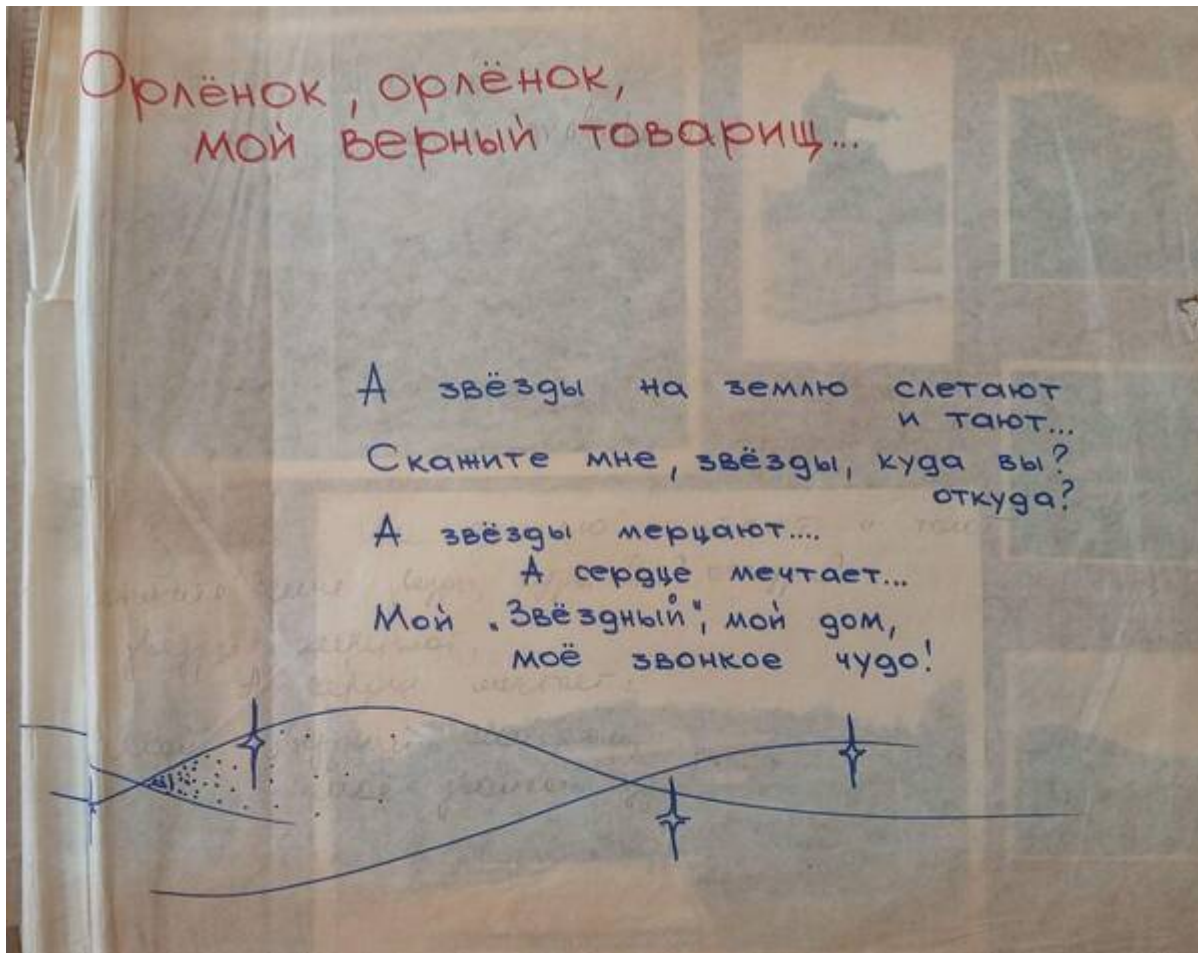 Орлёнок, орлёнок,
мой верный товарищ...
А звёзды на землю слетают
и тают...
Скажите мне, звёзды, куда вы?
откуда?
А звёзды мерцают....
А сердце мечтает...
Мой „Звёздный", мой дом,
моё звонкое чудо!